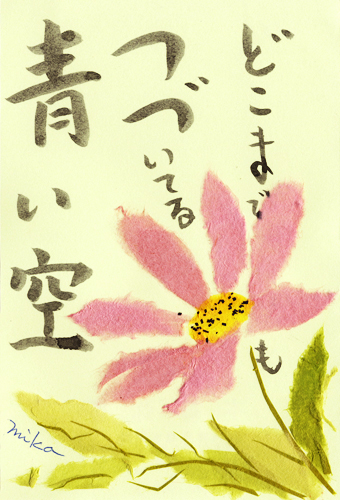 どこまでも
つづいてる
青い空
mika